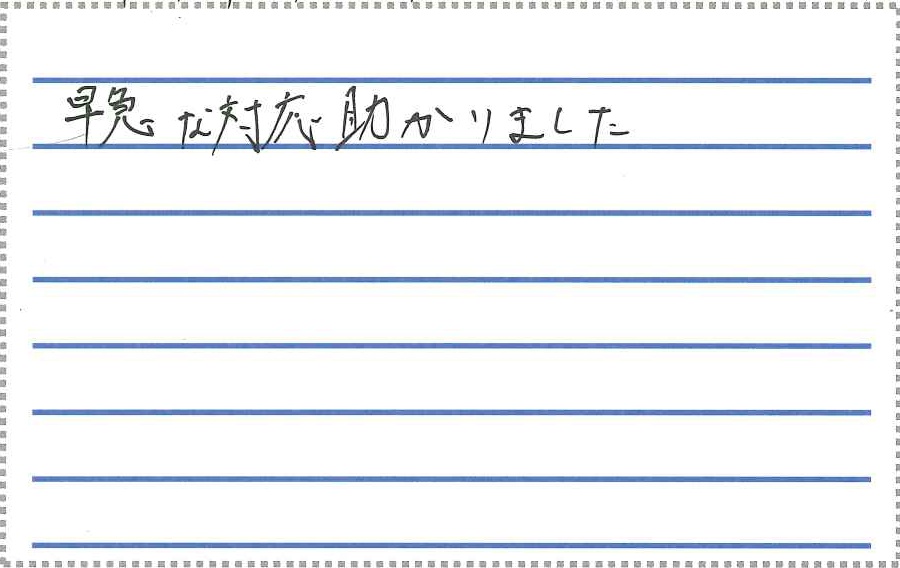 早急な対応助かりました